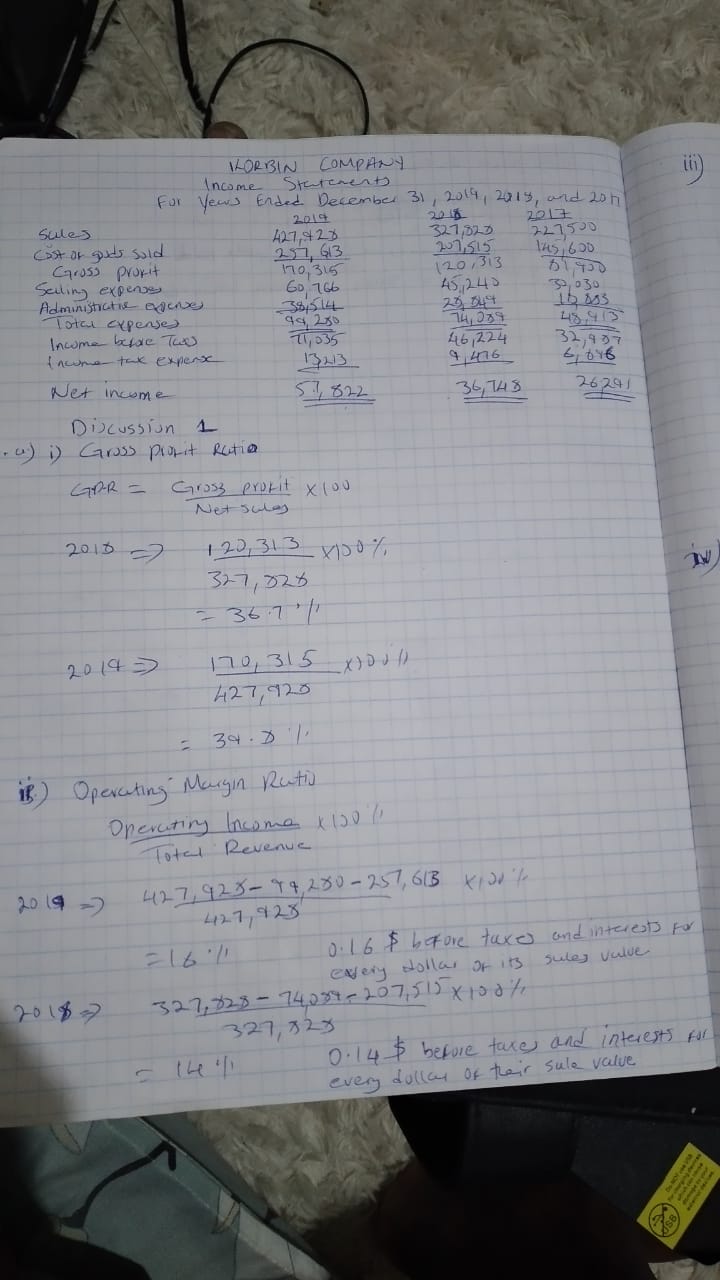 KORBIN COMPANY
Income Statements
For Years Ended December 31, 2019, 2018, and 2017
2019 2018 2017
Sales 427,928 327,828 227,500
Cost of goods sold 257,613 207,515 145,600
Gross profit 170,315 120,313 81,900
Selling expenses 60,766 45,240 30,030
Administrative expenses 38,514 28,849 18,883
Total expenses 99,280 74,089 48,913
Income before Taxes 71,035 46,224 32,987
Income tax expense 13213 9,476 6,696
Net income 57,822 36,748 26,291
Discussion 1
a) i) Gross profit Ratio
GPR = Gross profit X 100
Net sales
2018 => 120,313 X100%
327,828
= 36.7%
2019 => 170,315 X100%
427,928
= 39.8%
ii) Operating Margin Ratio
Operating Income X 100%
Total Revenue
2019 => 427,928 - 99,280 - 257,613 X100%
427,928
= 16% 0.16 $ before taxes and interests for
every dollar of its sales value
2018 => 327,828 - 74,089 - 207,515 X100%
327,828
= 14% 0.14 $ before taxes and interests for
every dollar of their sale value
iii)
iv)